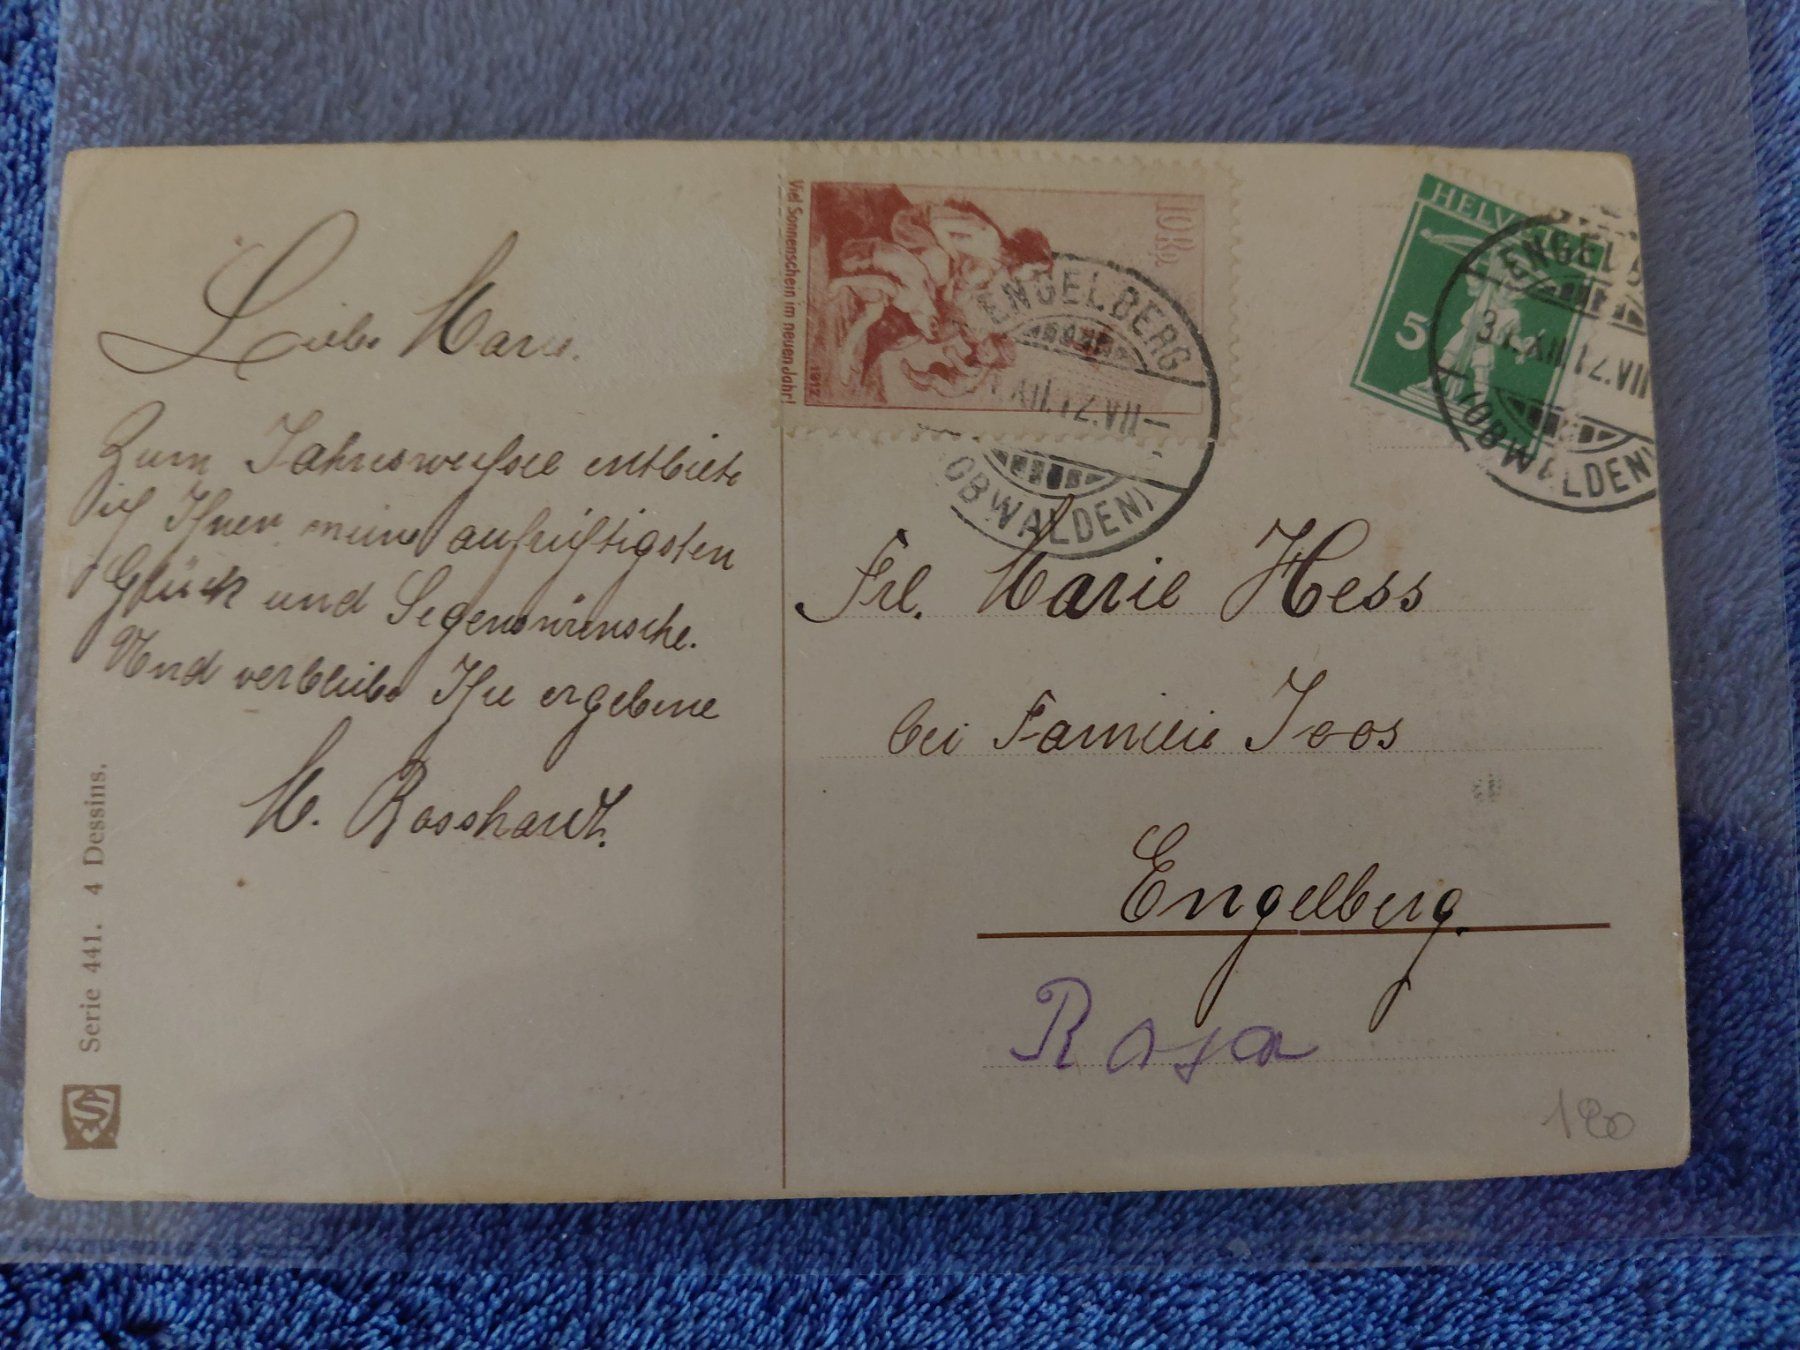 Liebe Marie.
Zum Jahreswechsel entbiete
ich Ihnen meine aufrichtigsten
Glück und Segenswünsche.
Und verbleibe Ihre ergebene
M. Bosshardt.
Serie 441. 4 Dessins.
Viel Sonnenschein im neuen Jahr!
1912
10 Rp.
ENGELBERG
XII.12.VII—
(OBWALDEN)
HELVETIA
5
ENGELB
31.XII.12.VII
(OBWALDEN)
Frl. Marie Hess
bei Familie Joos
Engelberg.
Rosa
180